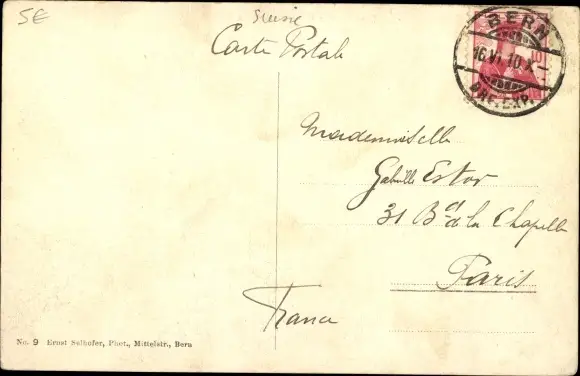 5E
Suisse
Carte Postale
BERN
16.VI.10.X
BRF.EXP.
10
Mademoiselle
Gabrielle Estor
31 Bd de la Chapelle
Paris
France
No. 9 Ernst Selhofer, Phot., Mittelstr., Bern